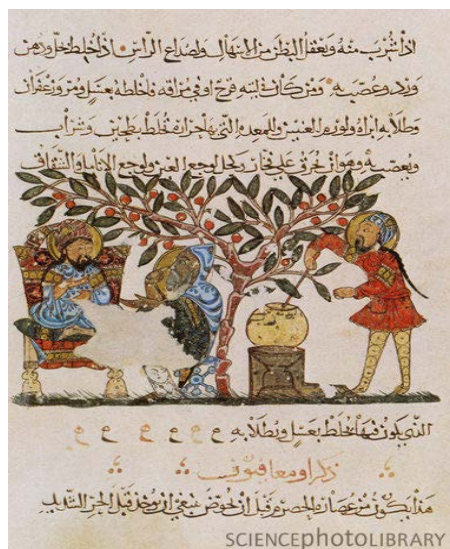 اذا شرب منه وىعقل البطن من الاسهال ولصداع الراس اذا خلط بخل ودهن
ورد وعصب به ومن كانت لثته قرح او في مراقه فاخلطه بعسل ومر وزعفران
وطلا به ابراه ولورم العينين وللمعده التي بها حراره تخلط بطحين وشراب
ويعصب به وهو ان يحرق على فخار ويكحل لوجع العين ولوجع الاذان والشقاق
الذي يكون فيها تخلط بعسل ويطلا به
ذكر اومفاقيون
هذا يكون من عصاره الحصرم قبل ان يحمض ينبغي ان يوخذ قبل الحر الشديد
SCIENCEPHOTOLIBRARY